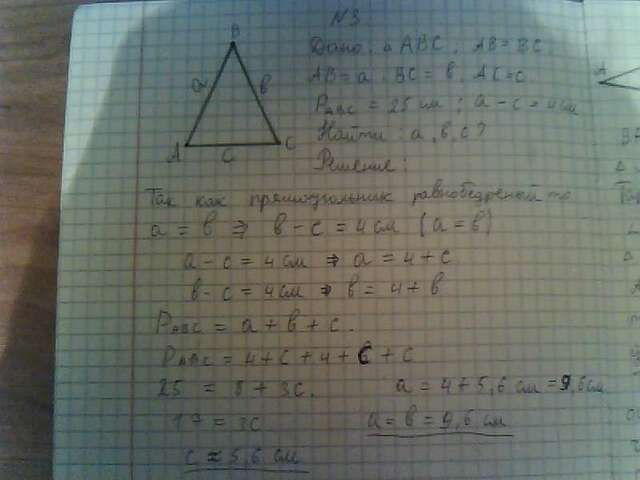 N 3
B
Дано: △ ABC, AB = BC
a
в
AB = a, BC = в, AC = c
P ABC = 25 см; a - c = 4 см
A
C
c
Найти: a, в, c?
Решение:
A
Так как прямоугольник равнобедреный то
a = в ⇒ в - c = 4 см (a = в)
a - c = 4 см ⇒ a = 4 + c
в - c = 4 см ⇒ в = 4 + в
P ABC = a + в + c.
P ABC = 4 + c + 4 + c + c
25 = 8 + 3c.
a = 4 + 5,6 см = 9,6 см
17 = 3c
a = в = 9,6 см
c ≈ 5,6 см